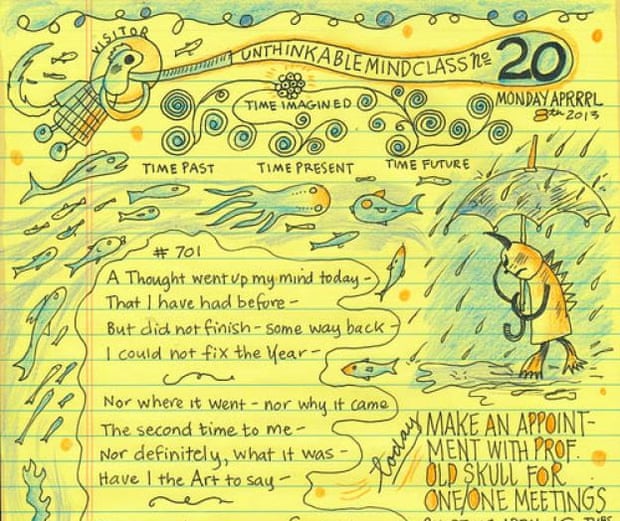 VISITOR
UNTHINKABLE MIND CLASS No
20
MONDAY APRRRL
8th 2013
TIME IMAGINED
TIME PAST
TIME PRESENT
TIME FUTURE
# 701
A Thought went up my mind today –
That I have had before –
But did not finish – some way back –
I could not fix the Year –
Nor where it went – nor why it came
The second time to me –
Nor definitely, what it was –
Have I the Art to say –
today
MAKE AN APPOINT-
MENT WITH PROF.
OLD SKULL FOR
ONE/ONE MEETINGS